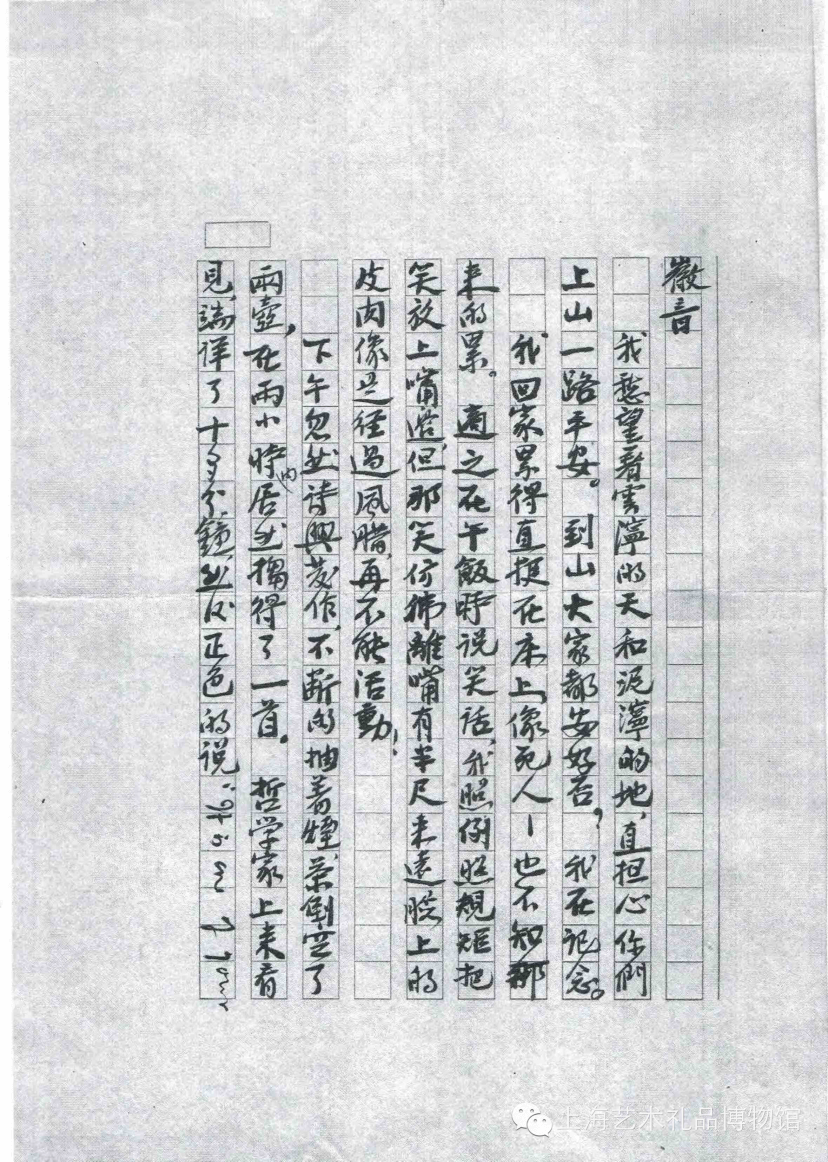 徽音
我愁望着雲濘的天和泥濘的地，直担心你們
上山一路平安。到山大家都安好否？我在記念。
我回家累得直挺在床上，像死人—也不知那
来的累。適之在午飯時说笑话，我照例照規矩把
笑放上嘴邊，但那笑彷彿離嘴有半尺来遠，脸上的
皮肉像是经過風腊，再不能活動！
下午忽然詩興發作，不断的抽着煙，茶倒空了
兩壺，在兩小時內，居然搊得了一首。哲学家上来看
見，端详了十多分鐘，然後正色的说：“It is one of your
上海艺术礼品博物馆